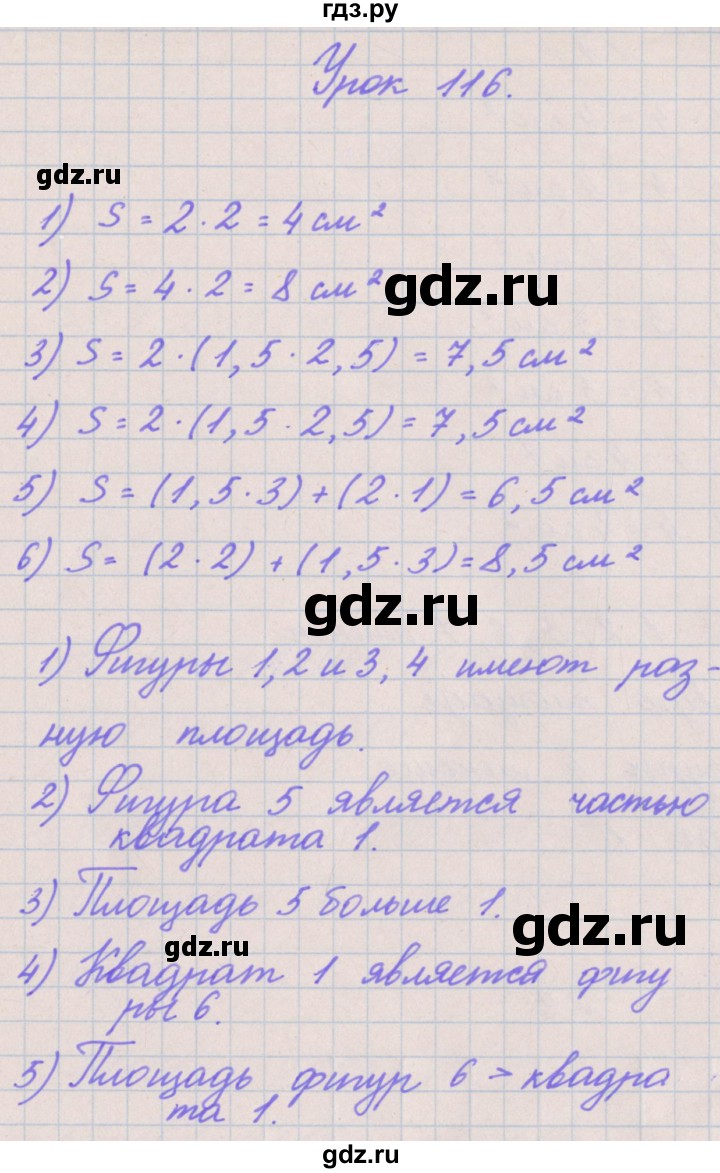 гдз.ру
Урок 116.
gdz.ru
1) S = 2 · 2 = 4 см²
2) S = 4 · 2 = 8 см²
gdz.ru
3) S = 2 · (1,5 · 2,5) = 7,5 см²
4) S = 2 · (1,5 · 2,5) = 7,5 см²
5) S = (1,5 · 3) + (2 · 1) = 6,5 см²
6) S = (2 · 2) + (1,5 · 3) = 8,5 см²
gdz.ru
1) Фигуры 1, 2 и 3, 4 имеют раз-
ную площадь.
2) Фигура 5 является частью
квадрата 1.
3) Площадь 5 больше 1.
gdz.ru
gdz.ru
4) Квадрат 1 является фигу
ры 6.
5) Площадь фигур 6 > квадра
та 1.
gdz.ru